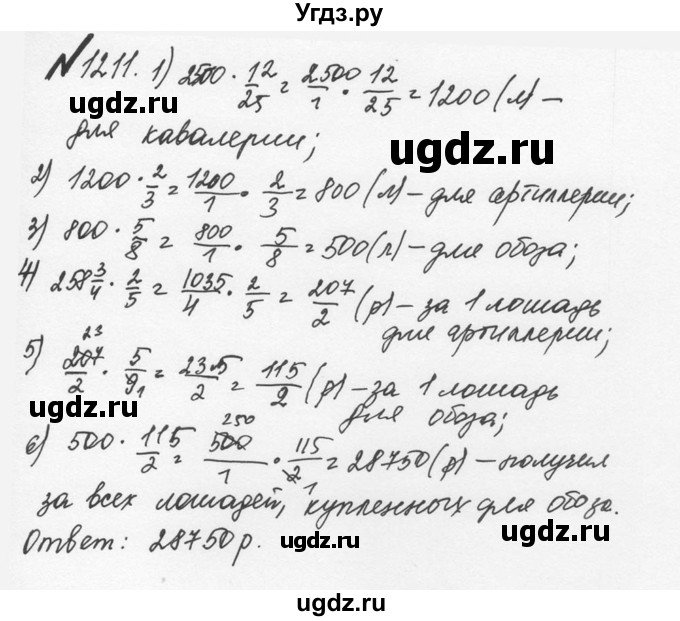 Угдз.ру
№1211. 1) 2500 · 12/25 = 2500/1 · 12/25 = 1200 (л) –
для кавалерии;
2) 1200 · 2/3 = 1200/1 · 2/3 = 800 (л) – для артиллерии;
3) 800 · 5/8 = 800/1 · 5/8 = 500 (л) – для обоза;
4) 258 3/4 · 2/5 = 1035/4 · 2/5 = 207/2 (р) – за 1 лошадь
для артиллерии;
5) 207/2 · 5/9 = 23·5/2 = 115/2 (р) – за 1 лошадь
23
1
для обоза;
6) 500 · 115/2 = 500/1 · 115/2 = 28750 (р) – получил
250
1
за всех лошадей, купленных для обоза.
Ответ: 28750 р.
ugdz.ru
ugdz.ru
ugdz.ru
ugdz.ru
ugdz.ru
ugdz.ru
ugdz.ru
ugdz.ru